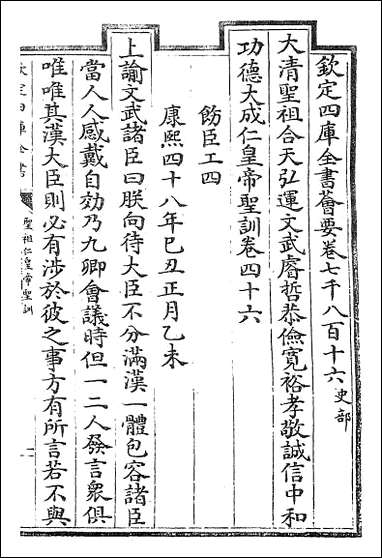 欽定四庫全書薈要卷七千八百十六 史部
大清聖祖合天弘運文武睿哲恭儉寬裕孝敬誠信中和
功德大成仁皇帝聖訓卷四十六
飭臣工四
康熙四十八年己丑正月乙未
上諭文武諸臣曰朕向待大臣不分滿漢一體包容諸臣
當人人感戴自効乃九卿會議時但一二人發言衆俱
唯唯其漢大臣則必有涉於彼之事方有所言若不與
欽定四庫全書
聖祖仁皇帝聖訓
一